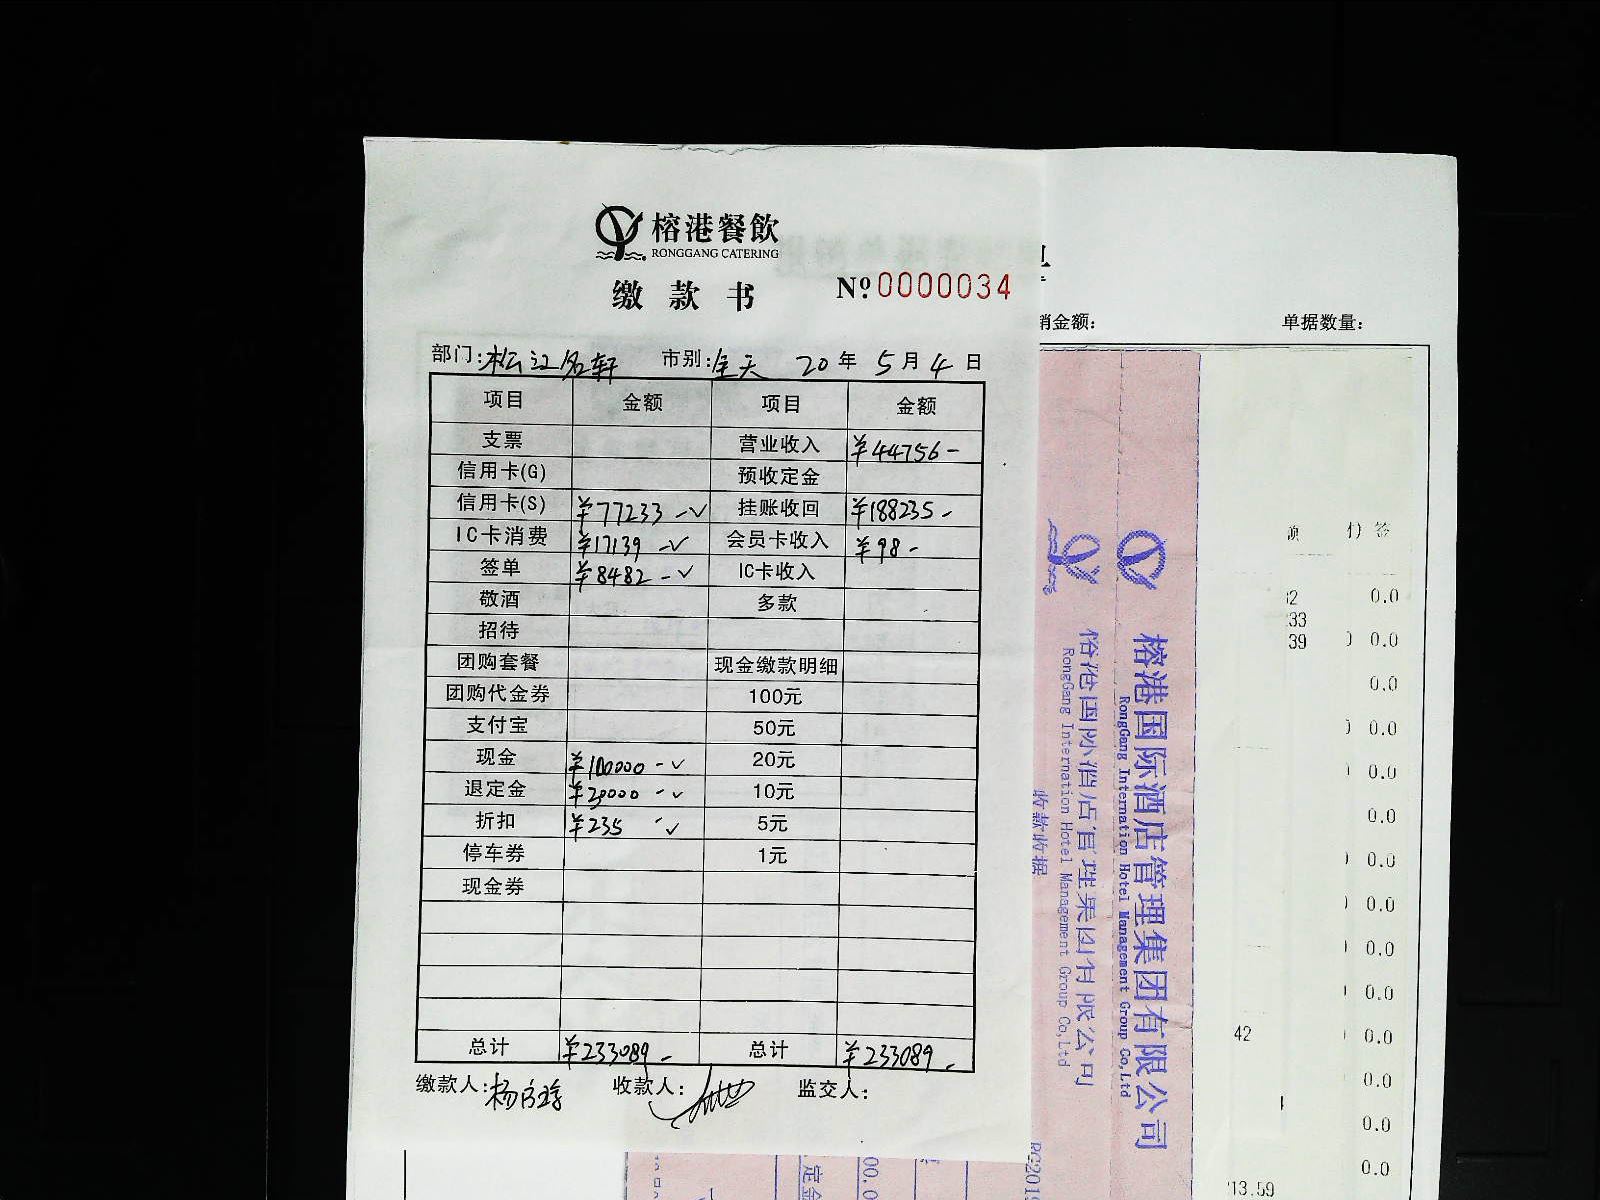 榕港餐飲
RONGGANG CATERING
缴款书 №0000034
部门:松江名轩 市别:全天 20年5月4日
项目 金额 项目 金额
支票 营业收入 ¥44756-
信用卡(G) 预收定金
信用卡(S) ¥77233-✓ 挂账收回 ¥188235-
IC卡消费 ¥17139-✓ 会员卡收入 ¥98-
签单 ¥8482-✓ IC卡收入
敬酒 多款
招待
团购套餐 现金缴款明细
团购代金券 100元
支付宝 50元
现金 ¥100000-✓ 20元
退定金 ¥30000-✓ 10元
折扣 ¥235-✓ 5元
停车券 1元
现金券
总计 ¥233089- 总计 ¥233089-
缴款人: 收款人: 监交人:
销金额: 单据数量:
榕港国际酒店管理集团有限公司
RongGang International Hotel Management Group Co,Ltd
榕港国际酒店管理集团有限公司
RongGang International Hotel Management Group Co,Ltd
收款收据
额 签
32 0.0
33
39 0.0
0.0
0.0
0.0
0.0
0.0
0.0
0.0
0.0
42 0.0
0.0
0.0
0.0
13.59
定金
00.0